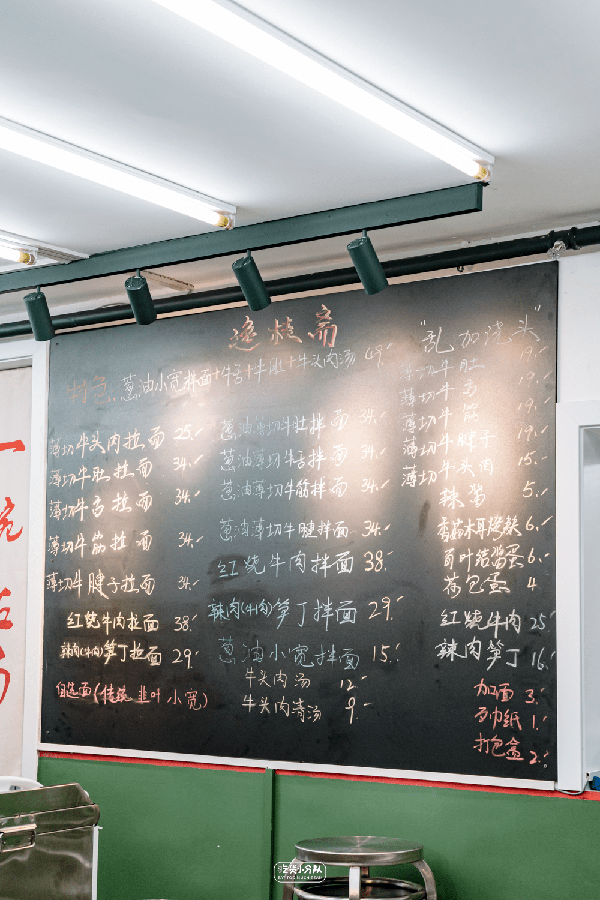 逸桂斋
特色:葱油小宽拌面+牛舌+牛肚+牛头肉汤 49.-
薄切牛头肉拉面 25.-
薄切牛肚拉面 34.-
薄切牛舌拉面 34.-
薄切牛筋拉面 34.-
薄切牛腱子拉面 34.-
红烧牛肉拉面 38.-
辣肉(牛肉)笋丁拉面 29.-
自选面(传统 韭叶 小宽)
葱油薄切牛肚拌面 34.-
葱油薄切牛舌拌面 34.-
葱油薄切牛筋拌面 34.-
葱油薄切牛腱拌面 34.-
红烧牛肉拌面 38.-
辣肉(牛肉)笋丁拌面 29.-
葱油小宽拌面 15.-
牛头肉汤 12.-
牛头肉清汤 9.-
"乱加浇头"
薄切牛肚 19.-
薄切牛舌 19.-
薄切牛筋 19.-
薄切牛腱子 19.-
薄切牛头肉 15.-
辣酱 5.-
香菇木耳烤麸 6.-
百叶结酱蛋 6.-
荷包蛋 4
红烧牛肉 25.-
辣肉笋丁 16.-
加面 3.-
餐巾纸 1.-
打包盒 2.-
一碗
吃货小分队